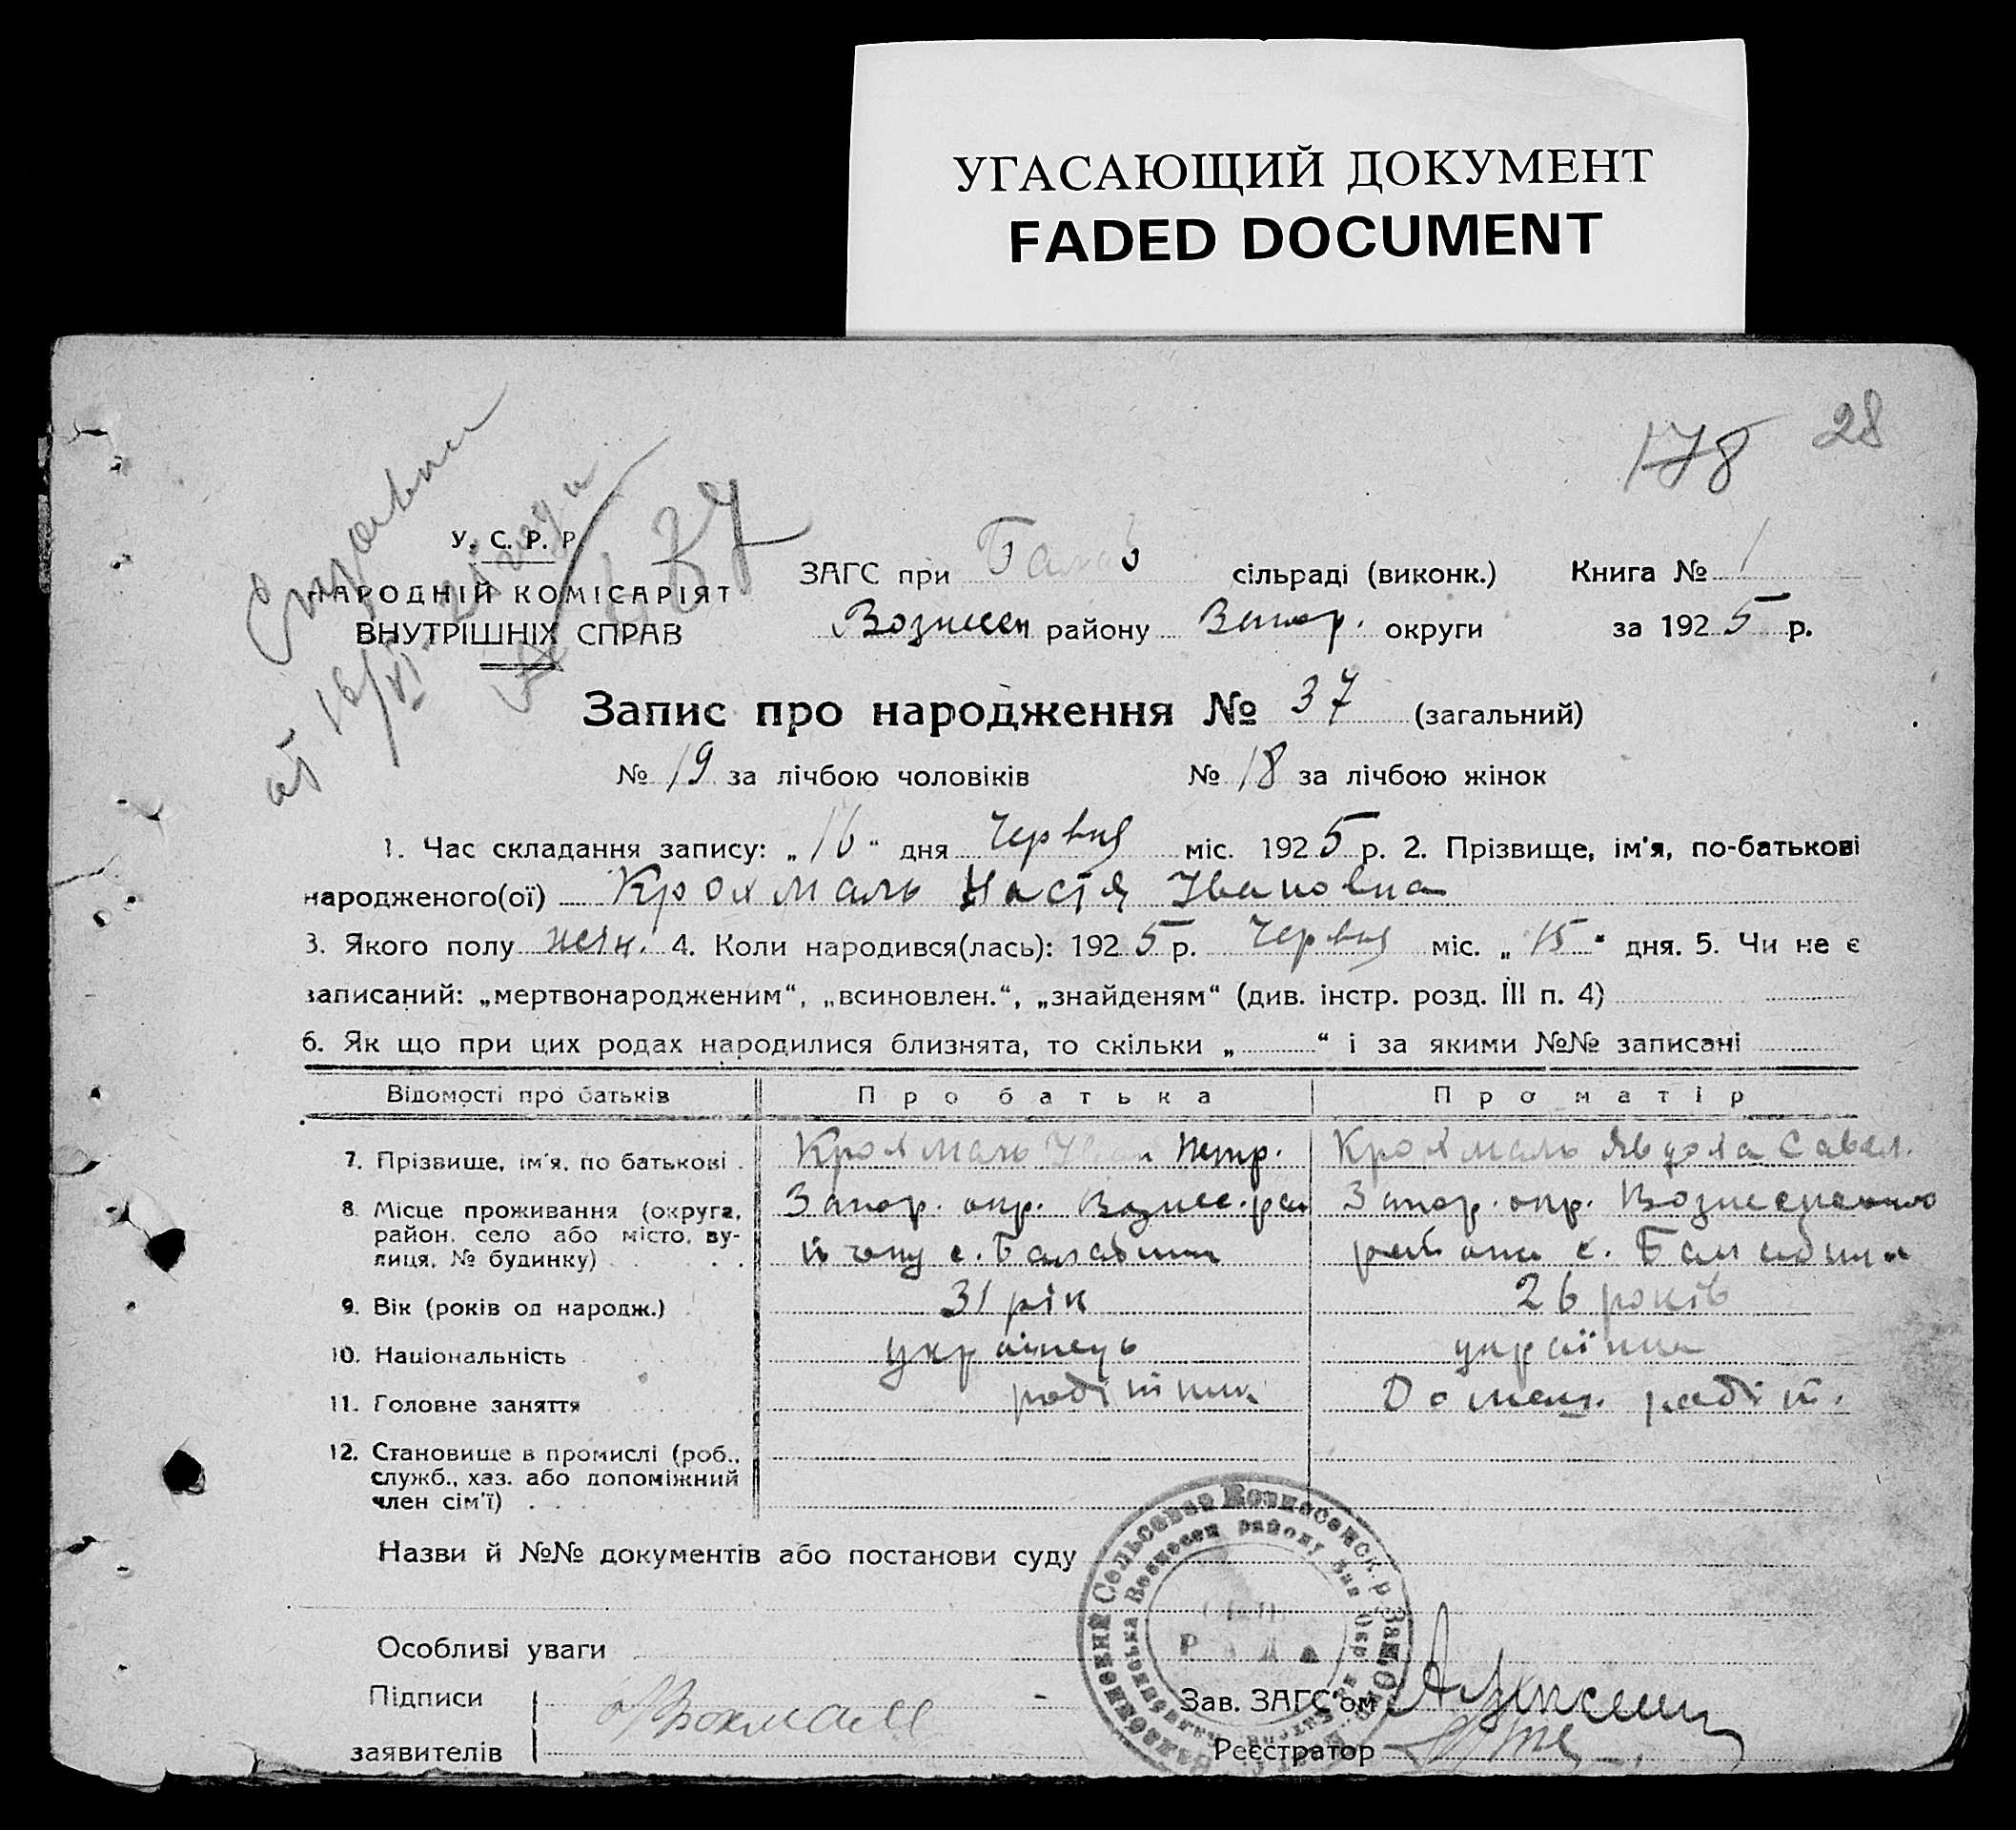 УГАСАЮЩИЙ ДОКУМЕНТ
FADED DOCUMENT
178 28
37
от 16/VI
У. С. Р. Р.
НАРОДНІЙ КОМІСАРІЯТ
ВНУТРІШНІХ СПРАВ
ЗАГС при Балаб сільраді (виконк.) Книга № 1
Вознесен району Запор. округи за 1925 р.
Запис про народження № 37 (загальний)
№ 19 за лічбою чоловіків № 18 за лічбою жінок
1. Час складання запису: „16“ дня Червня міс. 1925 р. 2. Прізвище, ім'я, по-батькові
народженого(ої) Крохмаль Настя Івановна
3. Якого полу жін. 4. Коли народився(лась): 1925 р. Червня міс. „15“ дня. 5. Чи не є
записаний: „мертвонародженим“, „всиновлен.“, „знайденям“ (див. інстр. розд. III п. 4)
6. Як що при цих родах народилися близнята, то скільки „ “ і за якими №№ записані
Відомості про батьків Про батька Про матір
7. Прізвище, ім'я, по батькові Крохмаль Іван Петр. Крохмаль Явдоха Савел.
8. Місце проживання (округа, Запор. окр. Вознес. рай Запор. окр. Вознесенського
район, село або місто, ву-
лиця, № будинку) ону с. Балабина района с. Балабина
9. Вік (років од народж.) 31 рік 26 років
10. Національність українець українка
11. Головне заняття робітник Домаш. робіт.
12. Становище в промислі (роб.,
служб., хаз. або допоміжний
член сім'ї)
Назви й №№ документів або постанови суду
Особливі уваги
Підписи
заявителів
Зав. ЗАГС'ом
Реєстратор
Сельсовет Вознесенск. р.
РАДА